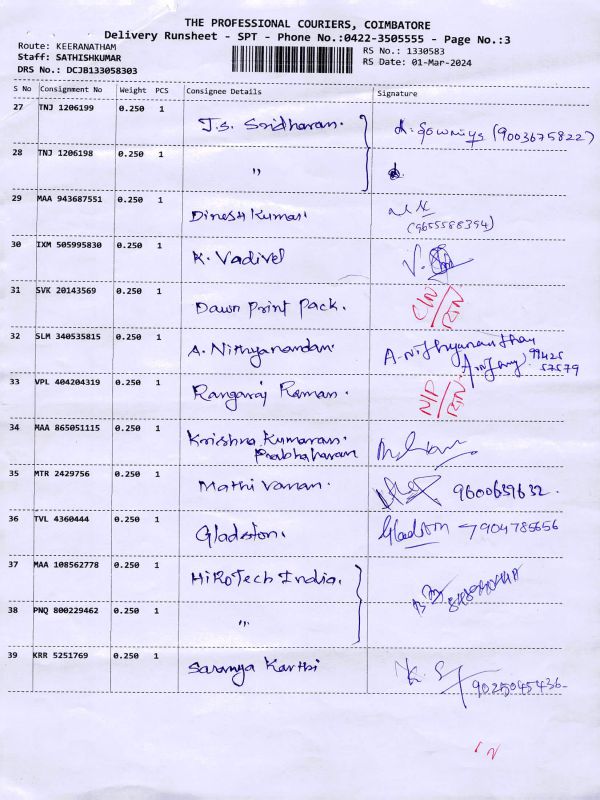 THE PROFESSIONAL COURIERS, COIMBATORE
Delivery Runsheet - SPT - Phone No.:0422-3505555 - Page No.:3
Route: KEERANATHAM
RS No.: 1330583
Staff: SATHISHKUMAR
RS Date: 01-Mar-2024
DRS No.: DCJB133058303
S No Consignment No Weight PCS Consignee Details Signature
27 TNJ 1206199 0.250 1 J.S. Sridharan. (9003675822)
28 TNJ 1206198 0.250 1 "
29 MAA 943687551 0.250 1 Dinesh Kumar.
(9655588394)
30 IXM 505995830 0.250 1 K. Vadivel
31 SVK 20143569 0.250 1 Dawn Print Pack. CIN/RTN
32 SLM 340535815 0.250 1 A. Nithyanandam. A. Nithyananthan
99425
57579
33 VPL 404204319 0.250 1 Rangaraj Raman. NIP/RTN
34 MAA 865051115 0.250 1 Krishna Kumaran.
Prabhaharan
35 MTR 2429756 0.250 1 Mathi Vanan. 9600639632.
36 TVL 4360444 0.250 1 Gladston. Gladston 7904785656
37 MAA 108562778 0.250 1 HiRoTech India.
38 PNQ 800229462 0.250 1 "
39 KRR 5251769 0.250 1 Saranya Karthi
9025045436